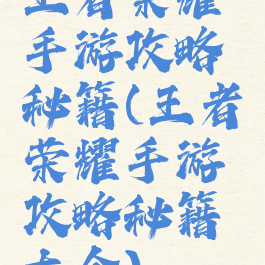 王者荣耀
手游攻略
秘籍(王者
荣耀手游
攻略秘籍
大全)